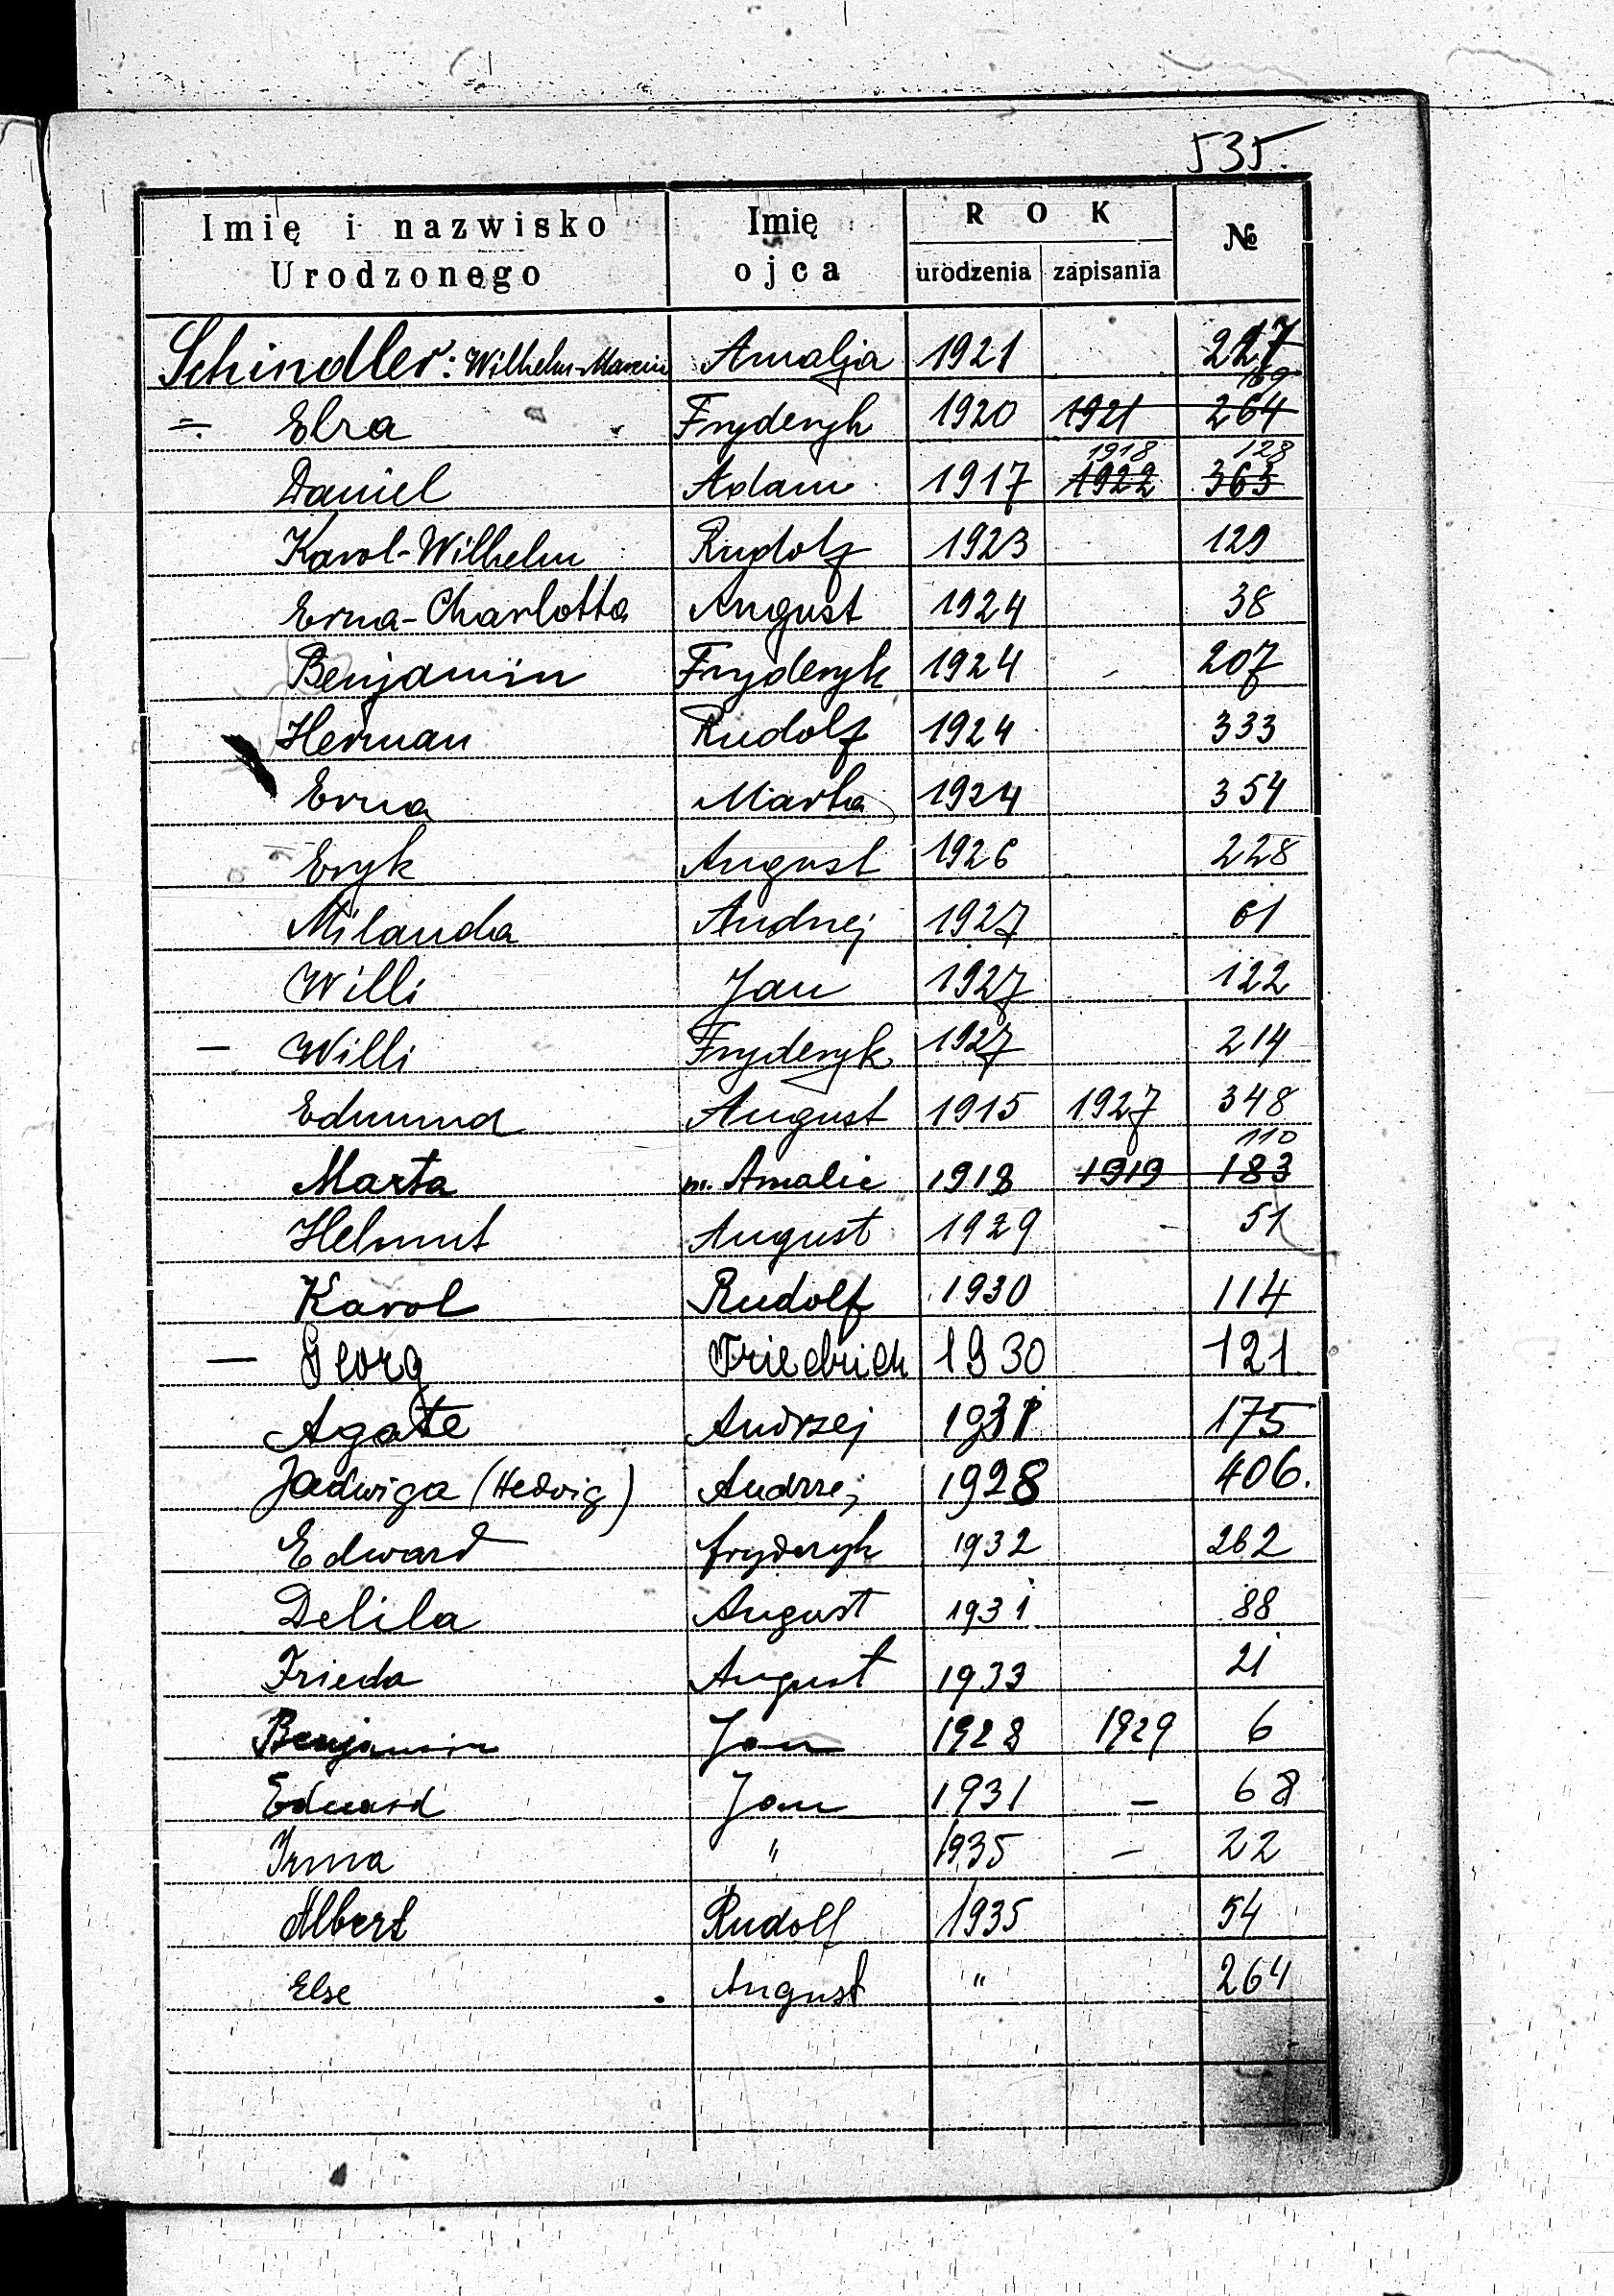 535.
Imię i nazwisko Urodzonego Imię ojca ROK urodzenia zapisania №
Schindler: Wilhelm-Marcin Amalja 1921 227
169
=. Elza Fryderyk 1920 1921 264
1918 128
Daniel Adam 1917 1922 363
Karol-Wilhelm Rudolf 1923 129
Erna-Charlotta August 1924 38
Benjamin Fryderyk 1924 - 207
Herman Rudolf 1924 333
Erna Marta 1924 354
Eryk August 1926 228
Milanda Andrzej 1927 61
Willi Jan 1927 122
— Willi Fryderyk 1927 214
Edmund August 1915 1927 348
110
Marta m. Amalie 1918 1919 183
Helmut August 1929 - 51
Karol Rudolf 1930 114
— Georg Friedrich 1930 121.
Agate Andrzej 1931 175
Jadwiga (Hedvig) Andrzej 1928 406.
Edward fryderyk 1932 262
Delila August 1931 88
Frieda August 1933 21
Benjamin Jan 1928 1929 6
Eduard Jan 1931 — 68
Irma " 1935 — 22
Albert Rudolf 1935 54
Else August " 264